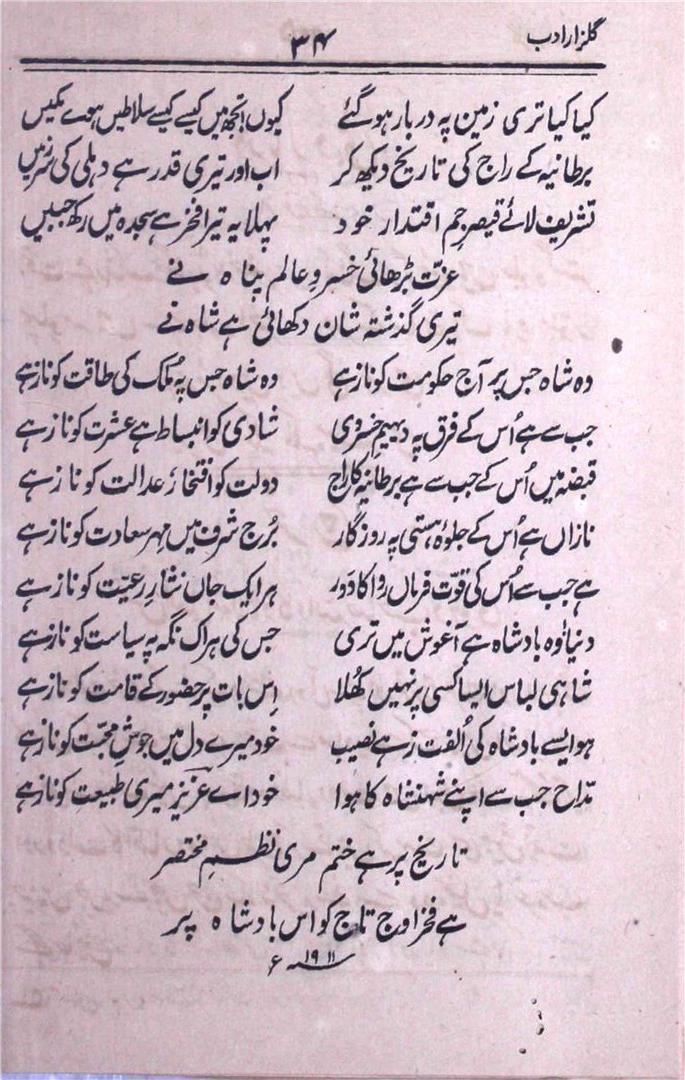 گلزار ادب
۳۴
کیا کیا تری زمین پہ دربار ہو گئے کیوں تجھ میں کیسے کیسے سلاطیں ہوے مکیں
برطانیہ کے راج کی تاریخ دیکھ کر اب اور تیری قدر ہے دہلی کی سرزمیں
تشریف لائے قیصرِ جم اقتدار خود پہلا یہ تیرا فخر ہے سجدہ میں رکھ جبیں
عزّت بڑھائی خسروِ عالم پناہ نے
تیری گذشتہ شان دکھائی ہے شاہ نے
وہ شاہ جس پر آج حکومت کو ناز ہے وہ شاہ جس پہ مُلک کی طاقت کو ناز ہے
جب سے ہے اُس کے فرق پہ دیہیمِ خسروی شادی کو انبساط ہے عشرت کو ناز ہے
قبضہ میں اُس کے جب سے ہے برطانیہ کا راج دولت کو افتخار عدالت کو ناز ہے
نازاں ہے اُس کے جلوۂ ہستی پہ روزگار بُرج شرف میں مہرِ سعادت کو ناز ہے
ہے جب سے اُس کی قوّت فرماں روا کا دَور ہر ایک جاں نثارِ رعیّت کو ناز ہے
دنیا وہ بادشاہ ہے آغوش میں تری جس کی ہر اک نگہ پہ سیاست کو ناز ہے
شاہی لباس ایسا کسی پر نہیں کھُلا اِس بات پر حضور کے قامت کو ناز ہے
ہو ایسے بادشاہ کی اُلفت زہے نصیب خود میرے دل میں جوشِ محبّت کو ناز ہے
مدّاح جب سے اپنے شہنشاہ کا ہوا خود اے عزیز میری طبیعت کو ناز ہے
تاریخ پر ہے ختم مری نظمِ مختصر
ہے فخر اوج تاج کو اس بادشاہ پر
۱۹۱۱ ؁ء